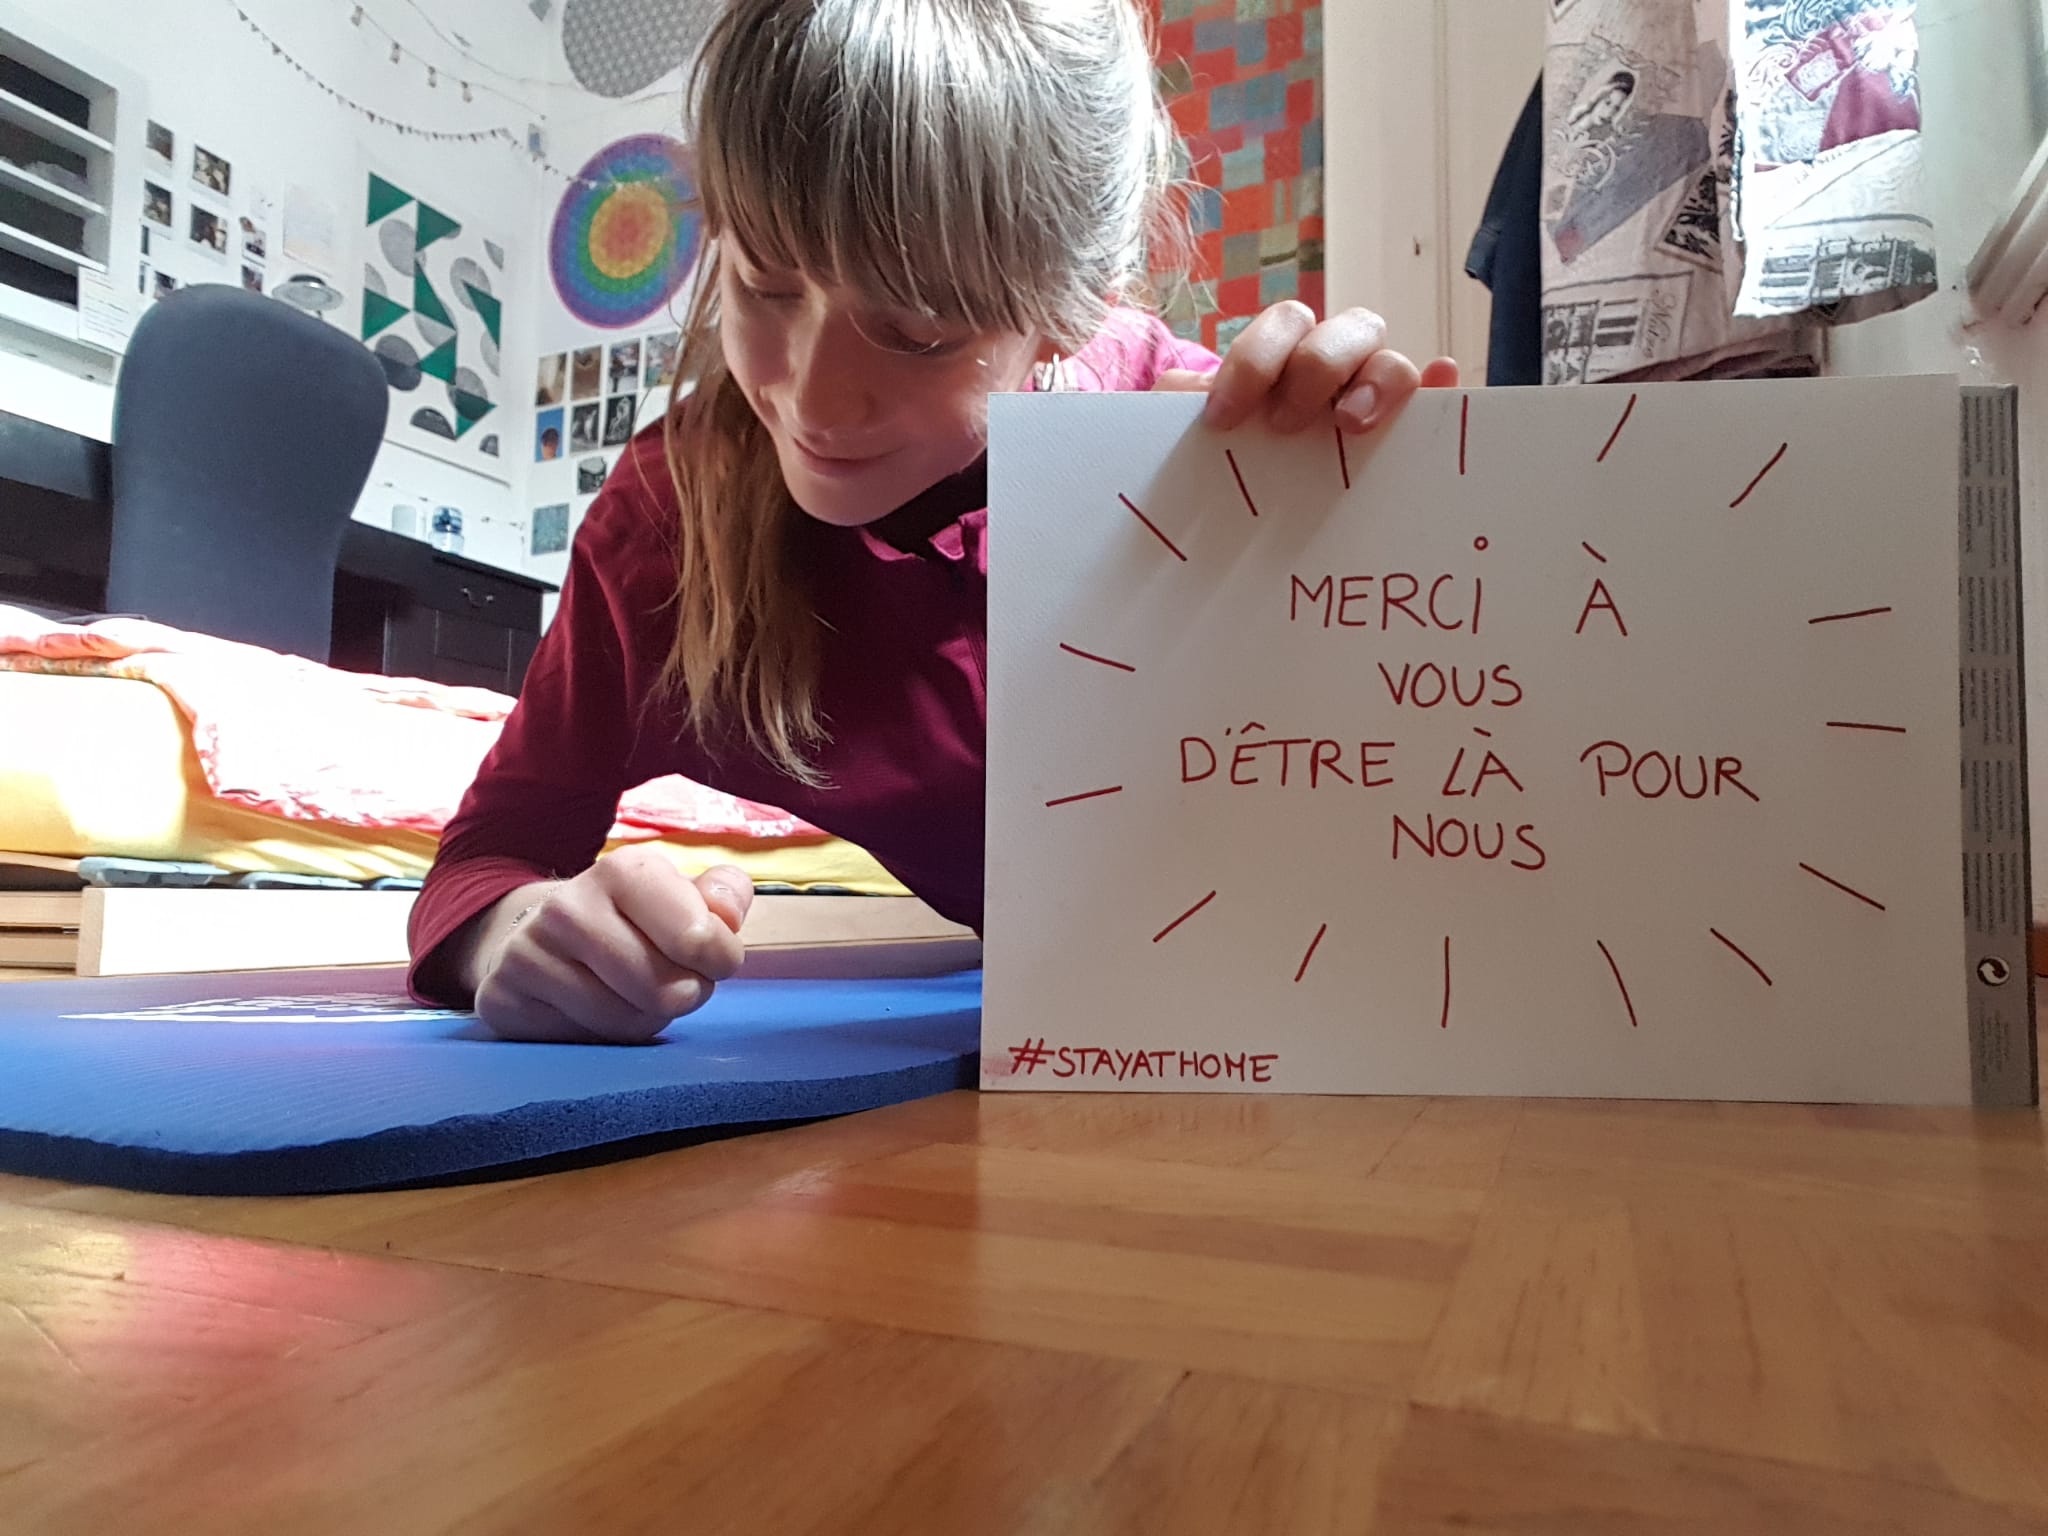 MERCI À
VOUS
D'ÊTRE LÀ POUR
NOUS
#STAYATHOME